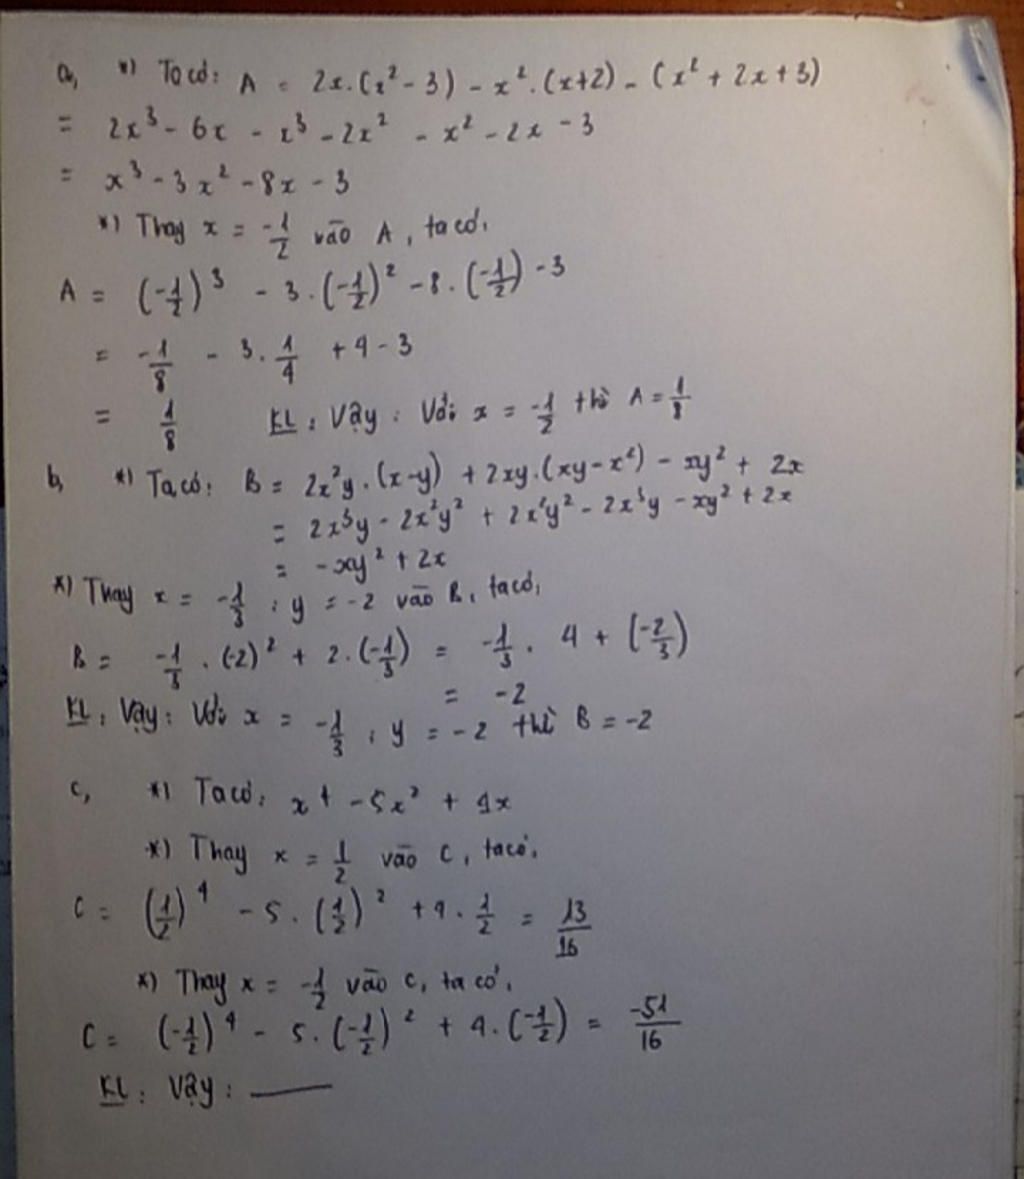 a, *) Ta có: A = 2x.(x² - 3) - x².(x+2) - (x² + 2x + 3)
= 2x³ - 6x - x³ - 2x² - x² - 2x - 3
= x³ - 3x² - 8x - 3
*) Thay x = -1/2 vào A, ta có:
A = (-1/2)³ - 3.(-1/2)² - 8.(-1/2) - 3
= -1/8 - 3.1/4 + 4 - 3
= 1/8 KL: Vậy: Với x = -1/2 thì A = 1/8
b, *) Ta có: B = 2x²y.(x-y) + 2xy.(xy-x²) - xy² + 2x
= 2x³y - 2x²y² + 2x²y² - 2x³y - xy² + 2x
= -xy² + 2x
*) Thay x = -1/3 ; y = -2 vào B, ta có:
B = -1/3 . (-2)² + 2.(-1/3) = -1/3 . 4 + (-2/3)
= -2
KL: Vậy: Với x = -1/3 ; y = -2 thì B = -2
c, *) Ta có: x⁴ - 5x² + 4x
*) Thay x = 1/2 vào C, ta có:
C = (1/2)⁴ - 5.(1/2)² + 4.1/2 = 13/16
*) Thay x = -1/2 vào C, ta có:
C = (-1/2)⁴ - 5.(-1/2)² + 4.(-1/2) = -51/16
KL: Vậy: ——